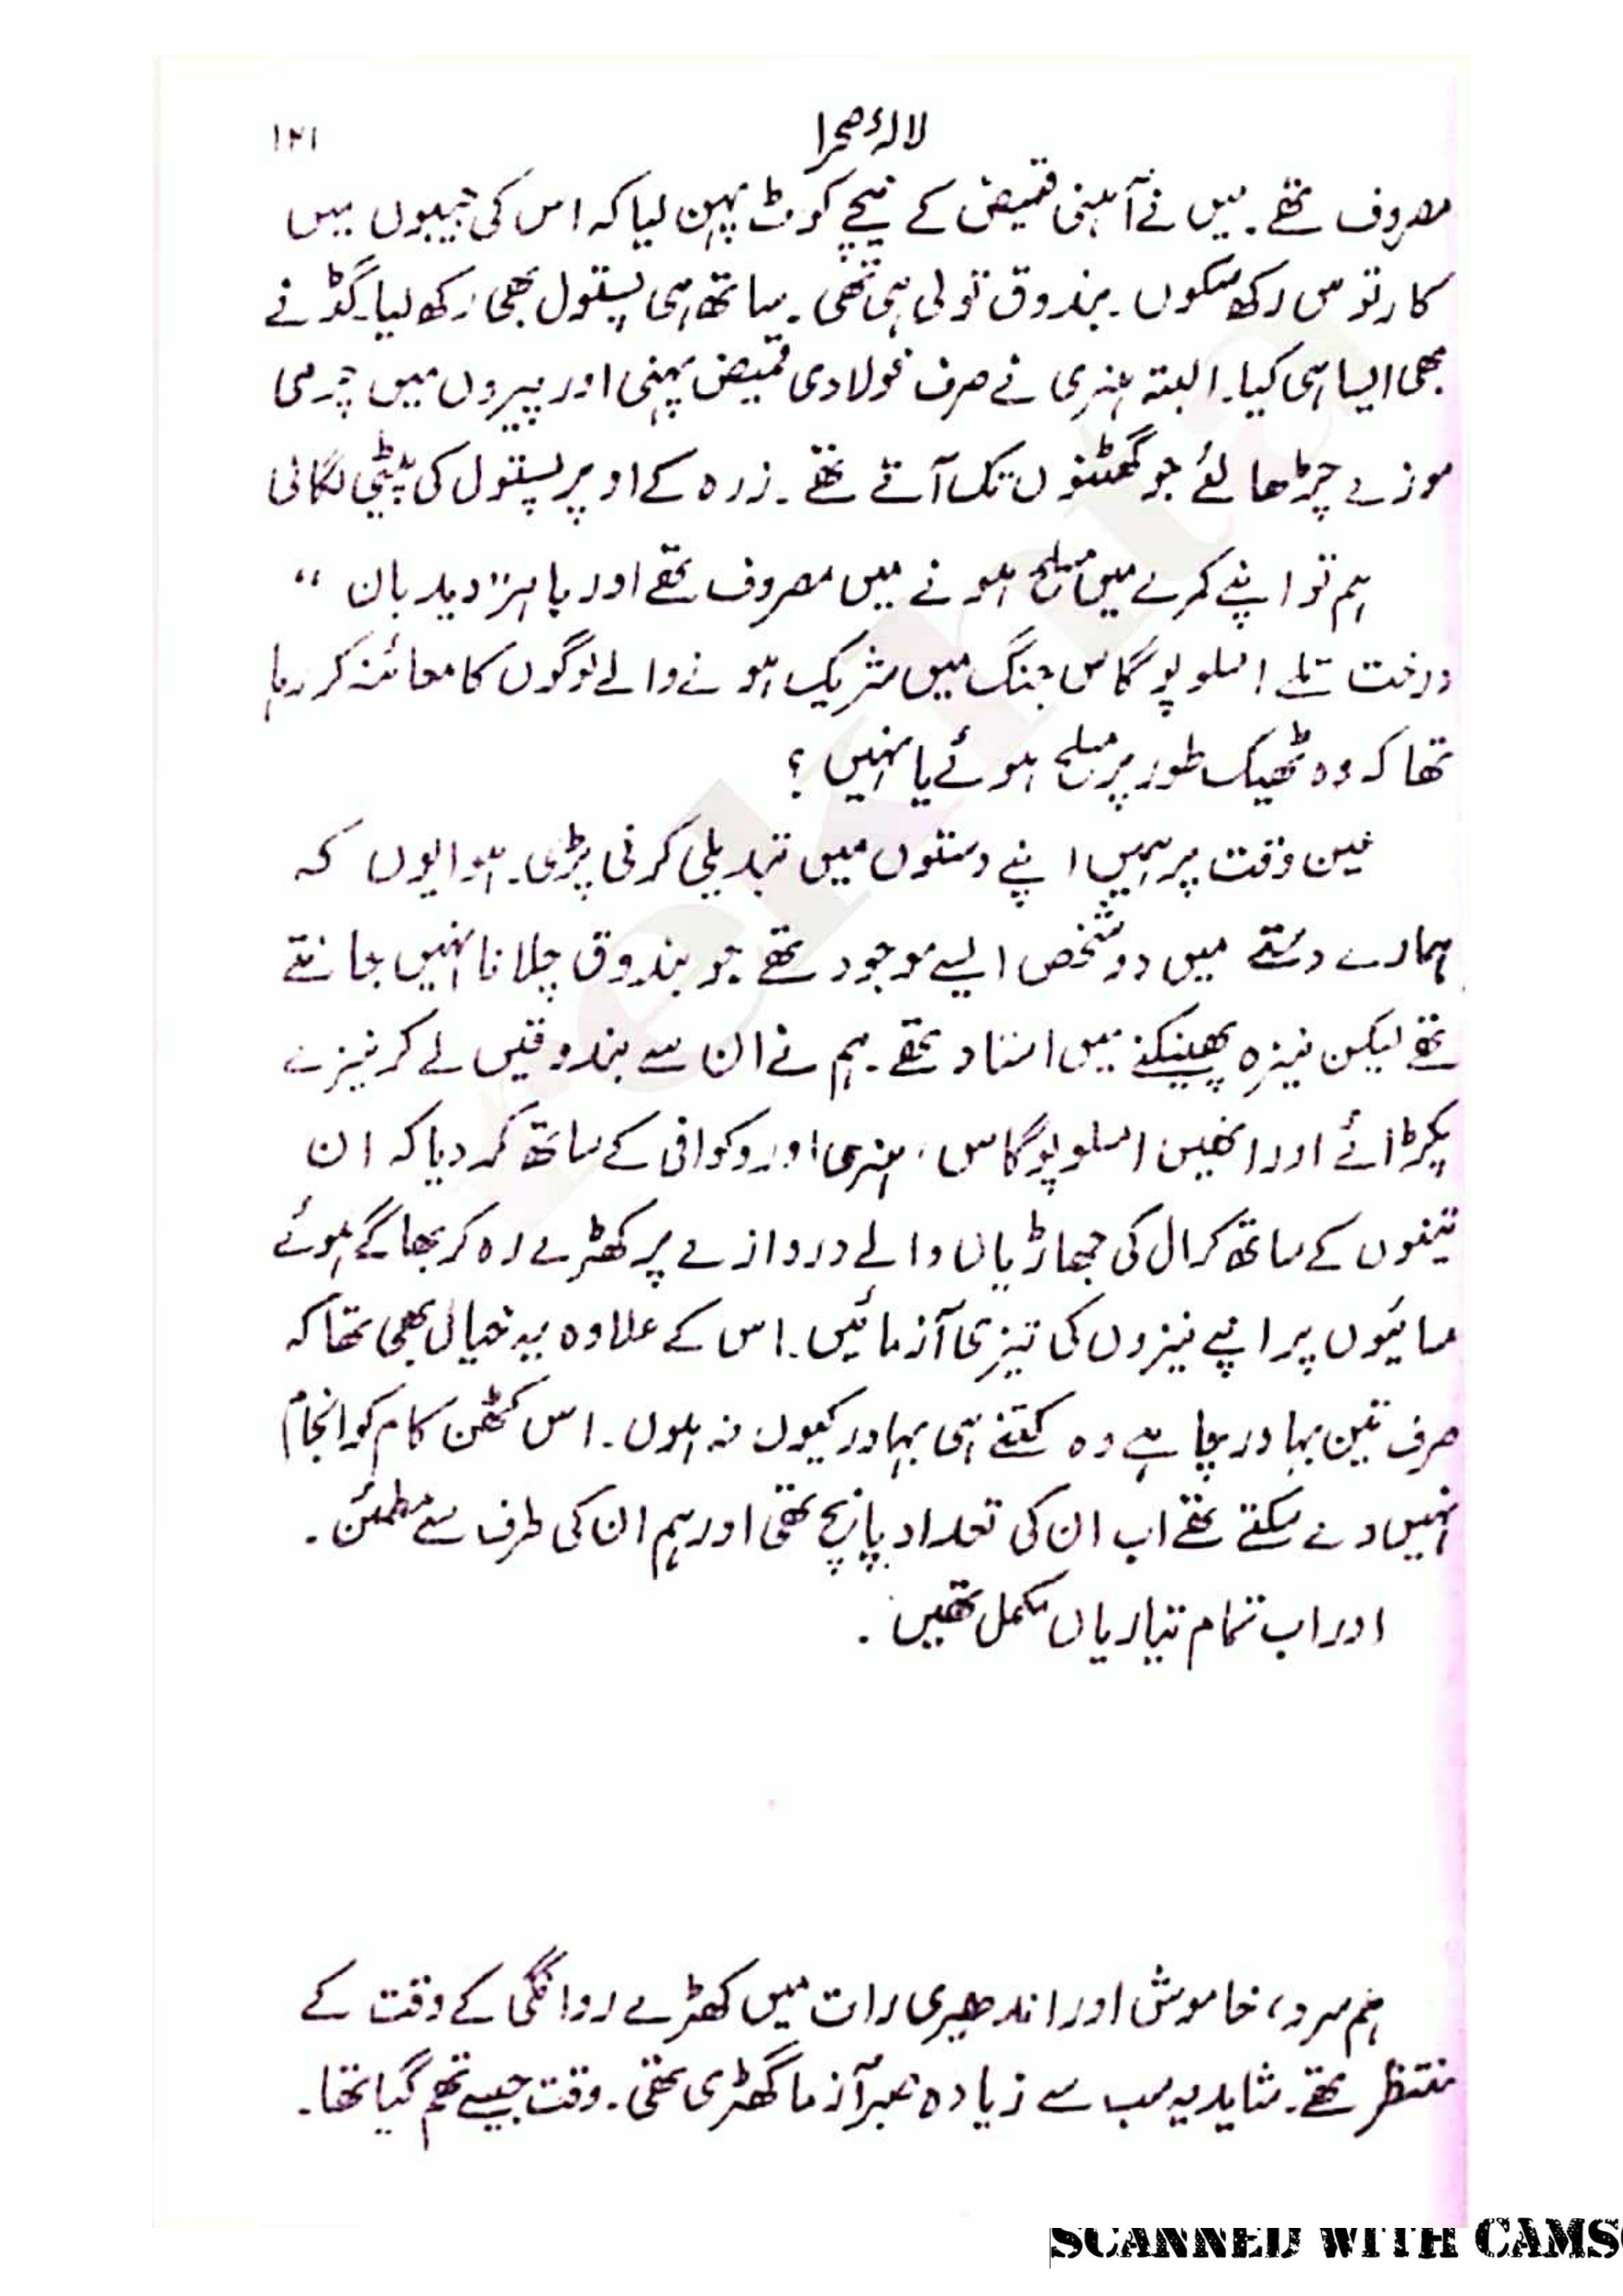 لالۂ صحرا
۱۲۱
مصروف تھے۔ میں نے آہنی قمیض کے نیچے کوٹ پہن لیا کہ اس کی جیبوں میں
کارتوس رکھ سکوں۔ بندوق تو لی ہی تھی۔ ساتھ ہی پستول بھی رکھ لیا۔ گڈ نے
بھی ایسا ہی کیا۔ البتہ ہنری نے صرف فولادی قمیض پہنی اور پیروں میں چرمی
موزے چڑھا لئے جو گھٹنوں تک آتے تھے۔ زرہ کے اوپر پستول کی پیٹی لگائی
ہم تو اپنے کمرے میں مسلح ہونے میں مصروف تھے اور باہر "دیدبان"
درخت تلے اسلوپوگاس جنگ میں شریک ہونے والے لوگوں کا معائنہ کر رہا
تھا کہ وہ ٹھیک طور پر مسلح ہوئے یا نہیں؟
عین وقت پر ہمیں اپنے دستوں میں تبدیلی کرنی پڑی۔ ہوا یوں کہ
ہمارے دستے میں دو شخص ایسے موجود تھے جو بندوق چلانا نہیں جانتے
تھے لیکن نیزہ پھینکنے میں استاد تھے۔ ہم نے ان سے بندوقیں لے کر نیزے
پکڑائے اور انھیں اسلوپوگاس، ہنری اور وکوافی کے ساتھ کر دیا کہ ان
تینوں کے ساتھ کرال کی جھاڑیاں والے دروازے پر کھڑے رہ کر بھاگے ہوئے
مسائیوں پر اپنے نیزوں کی تیزی آزمائیں۔ اس کے علاوہ یہ خیال بھی تھا کہ
صرف تین بہادر چاہے وہ کتنے ہی بہادر کیوں نہ ہوں۔ اس کٹھن کام کو انجام
نہیں دے سکتے تھے اب ان کی تعداد پانچ تھی اور ہم ان کی طرف سے مطمئن۔
اور اب تمام تیاریاں مکمل تھیں۔
ہم سرد، خاموش اور اندھیری رات میں کھڑے روانگی کے وقت کے
منتظر تھے۔ شاید یہ سب سے زیادہ صبر آزما گھڑی تھی۔ وقت جیسے تھم گیا تھا۔
SCANNED WITH CAMS